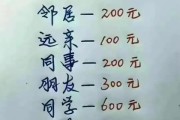 邻居—200元
远亲—100元
同事—200元
朋友—300元
同学—600元